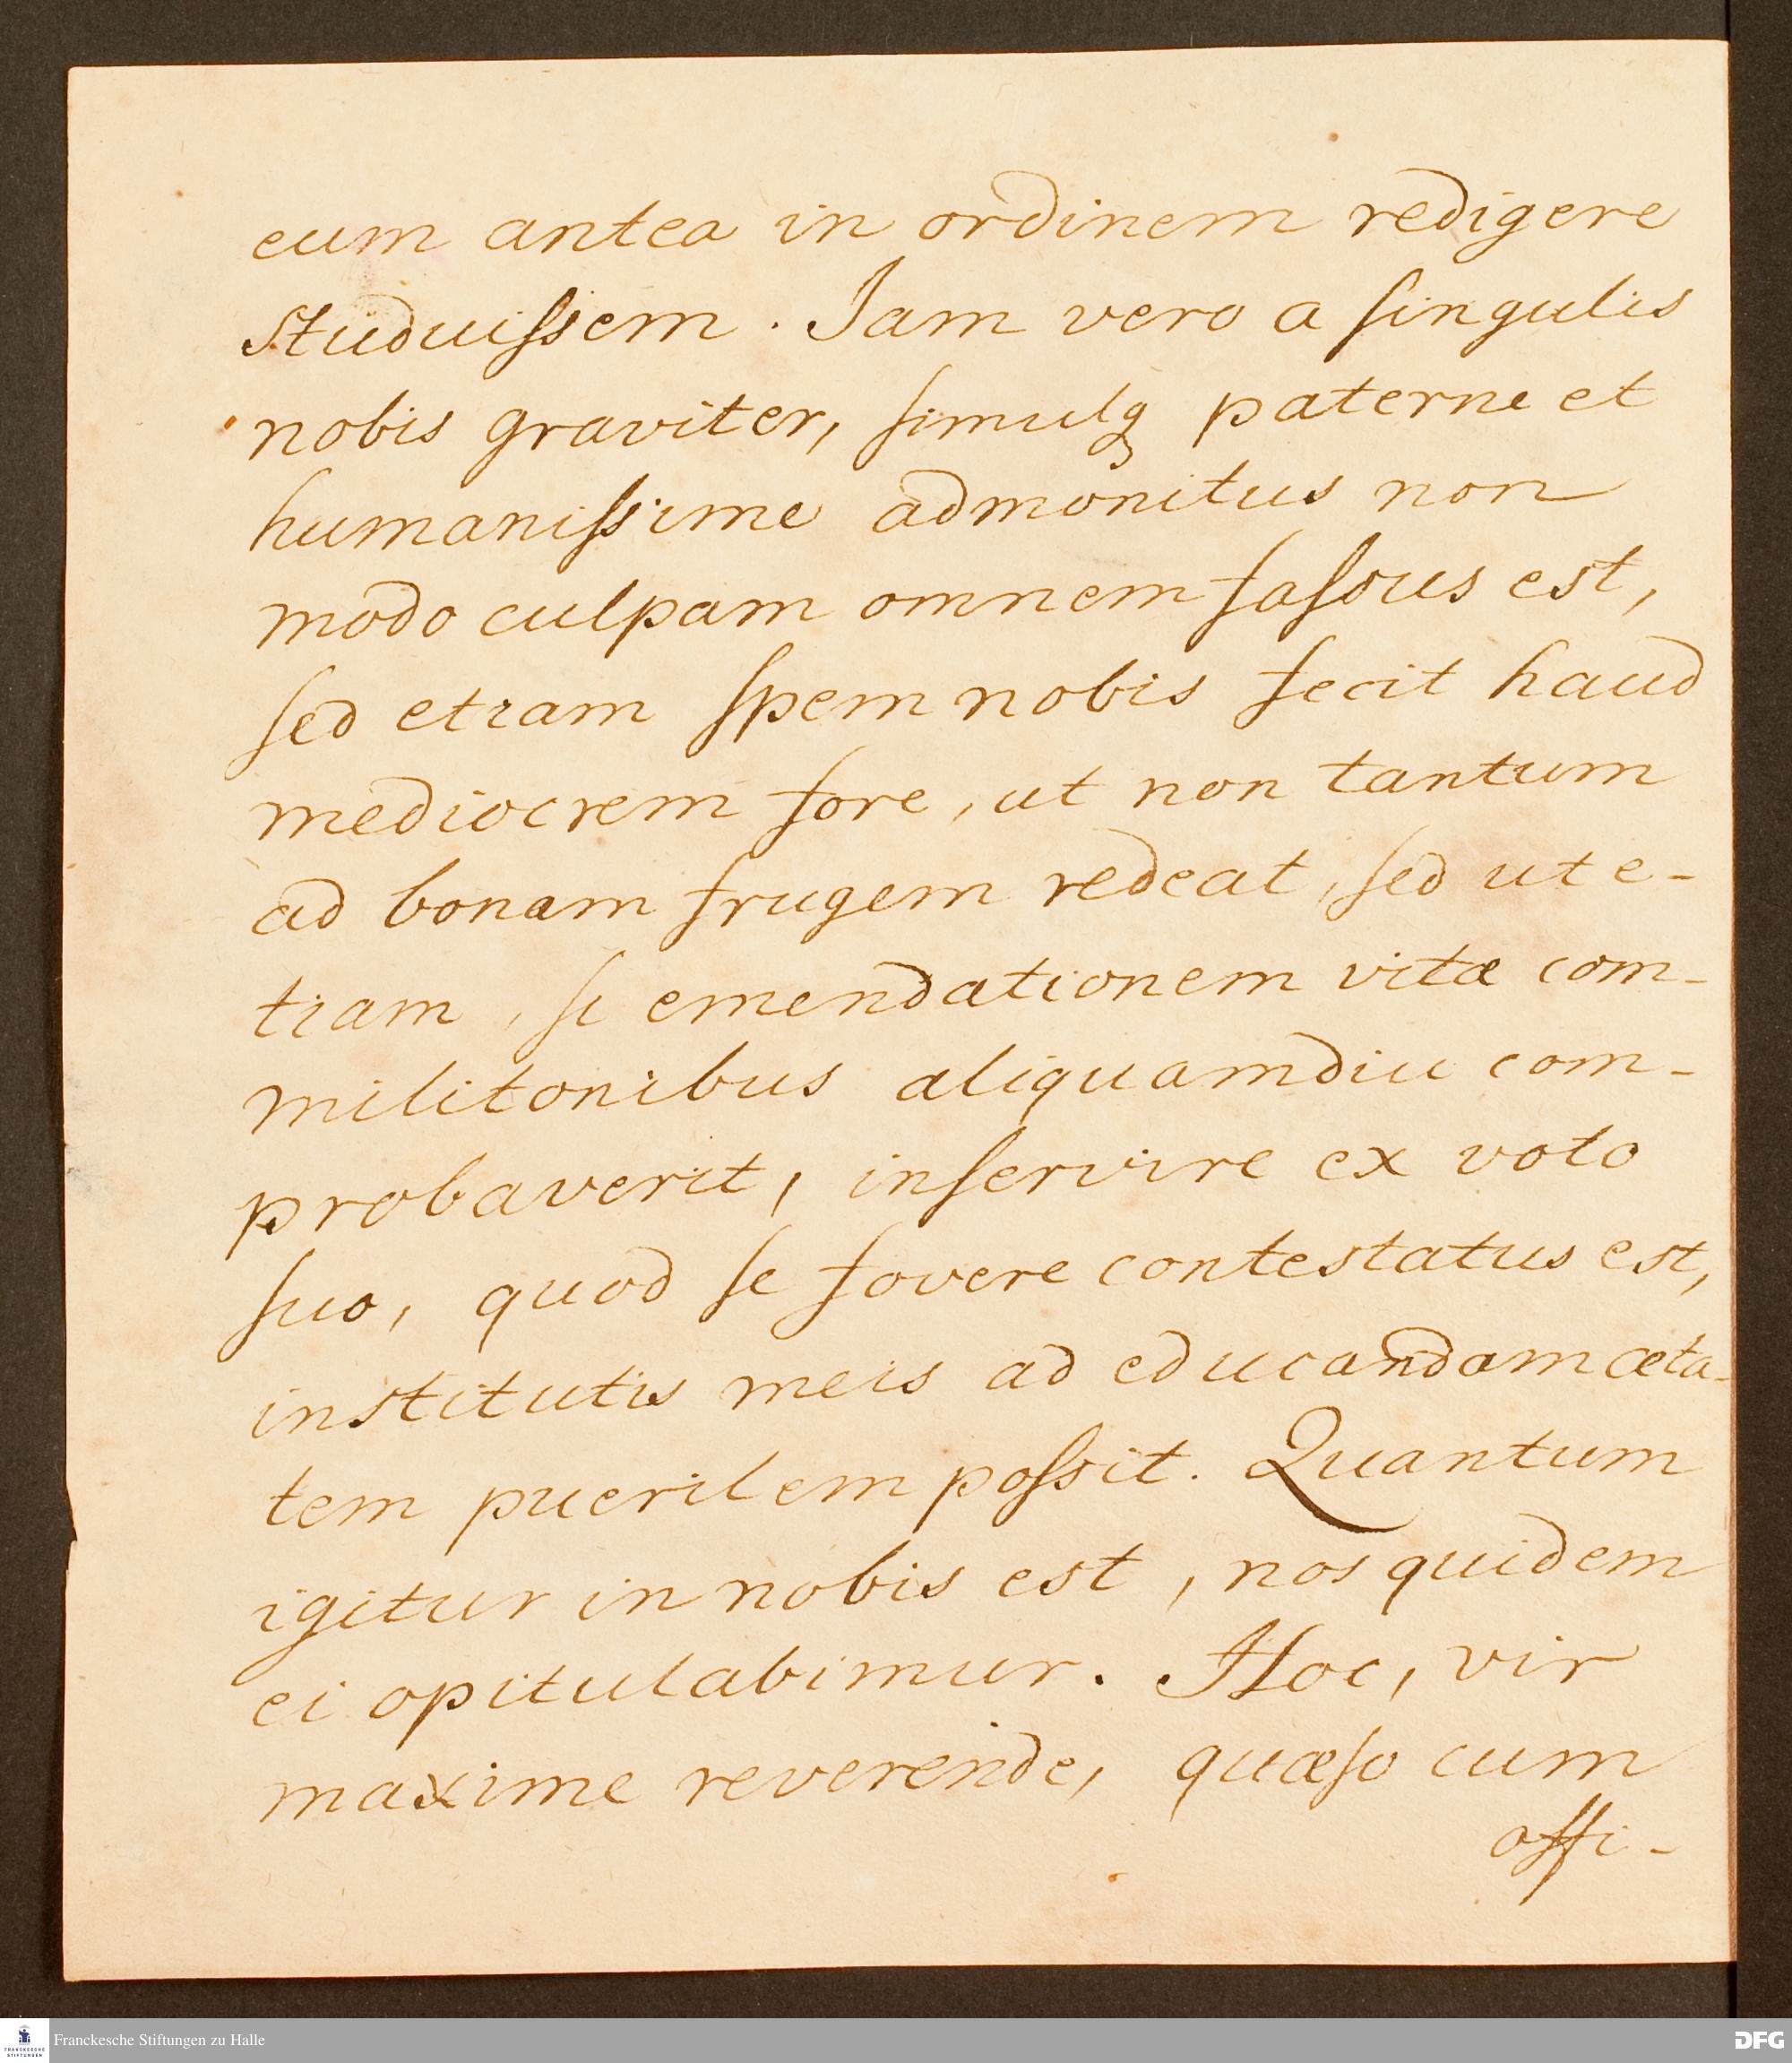 eum antea in ordinem redigere
studuiſsem. Iam vero a ſingulis
nobis graviter, ſimulq paterne et
humaniſsime admonitus non
modo culpam omnem faſsus est,
ſed etiam ſpem nobis fecit haud
mediocrem fore, ut non tantum
ad bonam frugem redeat, ſed ut e-
tiam, ſi emendationem vitæ com-
militonibus aliquamdiu com-
probaverit, inſervire ex voto
ſuo, quod ſe fovere contestatus est,
institutis meis ad educandam æta-
tem puerilem poſsit. Quantum
igitur in nobis est, nos quidem
ei opitulabimur. Hoc, vir
maxime reverende, quæſo cum
offi-
FRANCKESCHE STIFTUNGEN
Franckesche Stiftungen zu Halle
DFG